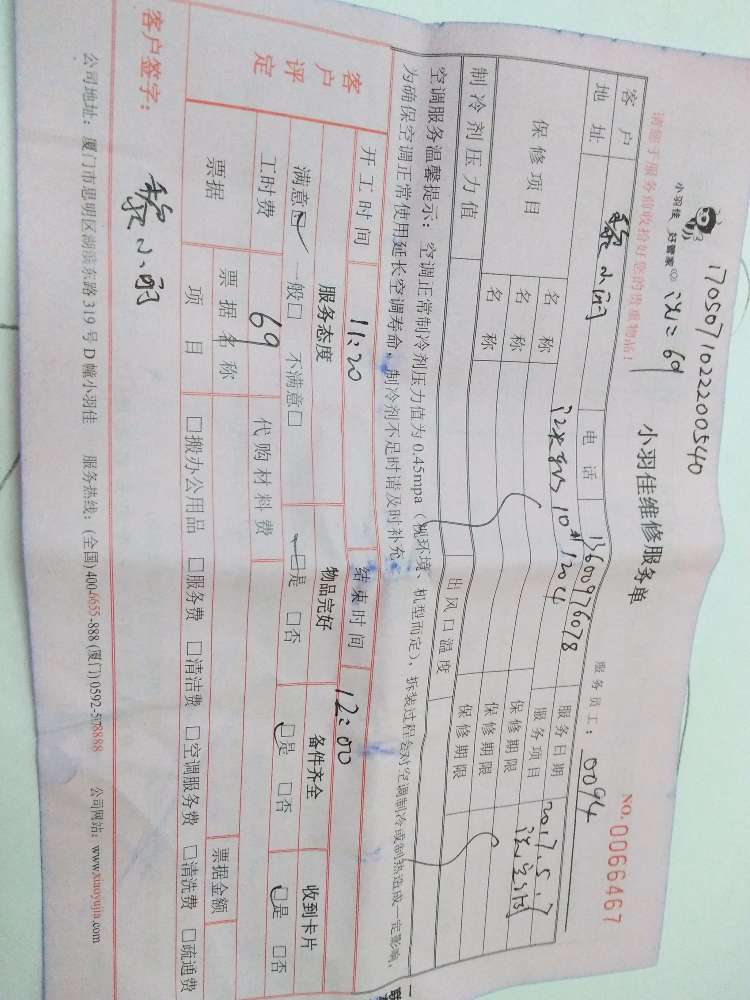 170507102220054​0
小羽佳 好管家
洗: 69
小羽佳维修服务单
NO. 0066467
请您于服务前收拾好您的贵重物品!
服务员工: 0094
客户 黎小 电话 13600976078 服务日期 2017.5.7
地址 服务项目
保修项目 名称 保修期限
名称 保修期限
名称 保修期限
制冷剂压力值 出风口温度
空调服务温馨提示: 空调正常制冷剂压力值为0.45mpa (视环境、机型而定), 拆装过程会对空调制冷或制热造成一定影响,
为确保空调正常使用延长空调寿命, 制冷剂不足时请及时补充。
开工时间 11:20 结束时间 12:00
客户评定 服务态度 物品完好 备件齐全 收到卡片
满意☑ 一般□ 不满意□ □是 □否 □是 □否 □是 □否
工时费 69 代购材料费
票据 票据名称 票据金额
项目 □搬办公用品 □服务费 □清洁费 □空调服务费 □清洗费 □疏通费
客户签字: 黎小
公司地址: 厦门市思明区湖滨东路319号D幢小羽佳 服务热线: (全国)400-6655-888 (厦门)0592-5178888 公司网站: www.xiaoyujia.com